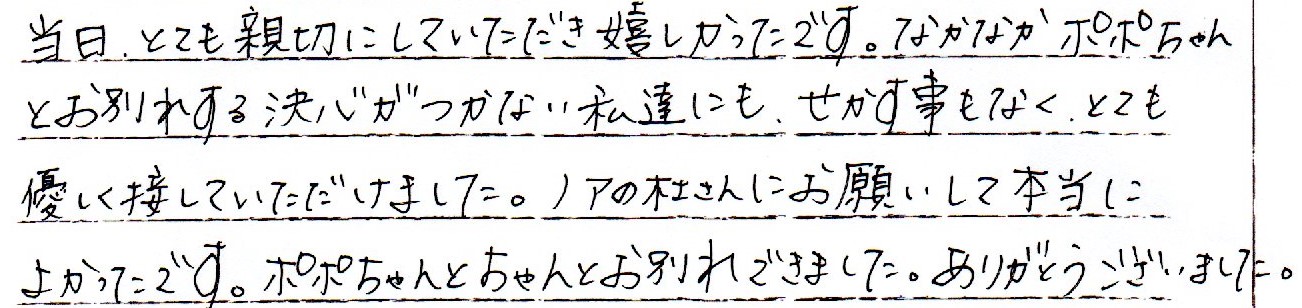 当日、とても親切にしていただき嬉しかったです。なかなかポポちゃん
とお別れする決心がつかない私達にも、せかす事もなく、とても
優しく接していただけました。ノアの杜さんにお願いして本当に
よかったです。ポポちゃんとちゃんとお別れできました。ありがとうございました。